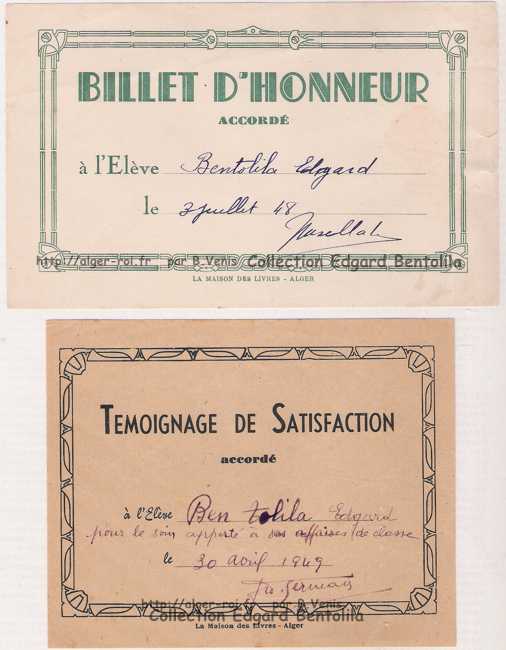 BILLET D'HONNEUR
ACCORDÉ
à l'Elève Bentolila Edgard
le 3 juillet 48
http://alger-roi.fr par B.Venis Collection Edgard Bentolila
LA MAISON DES LIVRES - ALGER
TEMOIGNAGE DE SATISFACTION
accordé
à l'Elève Ben tolila Edgard
pour le soin apporté à ses affaires de classe
le 30 avril 1949
Germain
http://alger-roi.fr par B.Venis
Collection Edgard Bentolila
La Maison des Livres - Alger